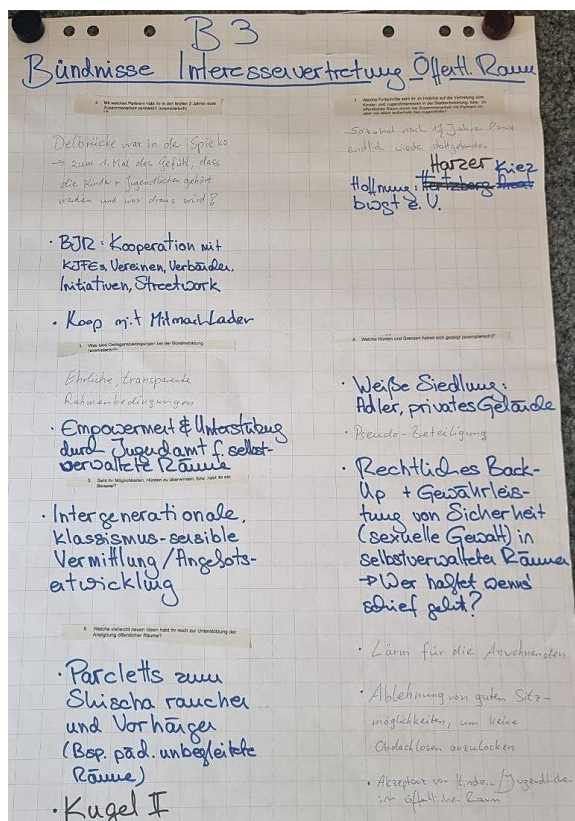 B 3
Bündnisse Interessenvertretung Öffentl. Raum
2. Mit welchen Partnern habt ihr in den letzten 2 Jahren eure
Zusammenarbeit verstärkt? (exemplarisch)
Delbrücke war in der Spieko
→ zum 1. Mal das Gefühl, dass
die Kinder + Jugendlichen gehört
werden und was draus wird!
· BJR: Kooperation mit
KJFEs, Vereinen, Verbänden,
Initiativen, Streetwork
· Koop mit MitmachLaden
3. Was sind Gelingensbedingungen bei der Bündnisbildung
(exemplarisch)?
Ehrliche, transparente
Rahmenbedingungen
· Empowerment & Unterstützung
durch Jugendamt f. selbst-
verwaltete Räume
5. Seht ihr Möglichkeiten, Hürden zu überwinden, bzw. habt ihr ein
Beispiel?
· Intergenerationale,
klassismus-sensible
Vermittlung/Angebots-
entwicklung
6. Welche vielleicht neuen Ideen habt ihr noch zur Unterstützung der
Aneignung öffentlicher Räume?
· Parcletts zum
Shischa rauchen
und Vorhänger
(Bsp. päd. unbegleitete
Räume)
· Kugel II
1. Welche Fortschritte seht ihr im Hinblick auf die Vertretung von
Kinder- und Jugendinteressen in der Stadtentwicklung, bzw. im
öffentlichen Raum durch die Zusammenarbeit mit Partnern
nach 1½ Jahren Pause
endlich wieder stattgefunden
Harzer Kiez
Hoffnung: Hertzberg
bwgt e.V.
4. Welche Hürden und Grenzen haben sich gezeigt (exemplarisch)?
· Weiße Siedlung:
Adler, privates Gelände
· Pseudo-Beteiligung
· Rechtliches Back-
Up + Gewährleis-
tung von Sicherheit
(sexuelle Gewalt) in
selbstverwalteten Räumen
→ Wer haftet wenns
schief geht?
· Lärm für die Anwohnenden
· Ablehnung von guten Sitz-
möglichkeiten, um keine
Obdachlosen anzulocken
· Akzeptanz von Kinder-/Jugendlichen
im öffentlichen Raum